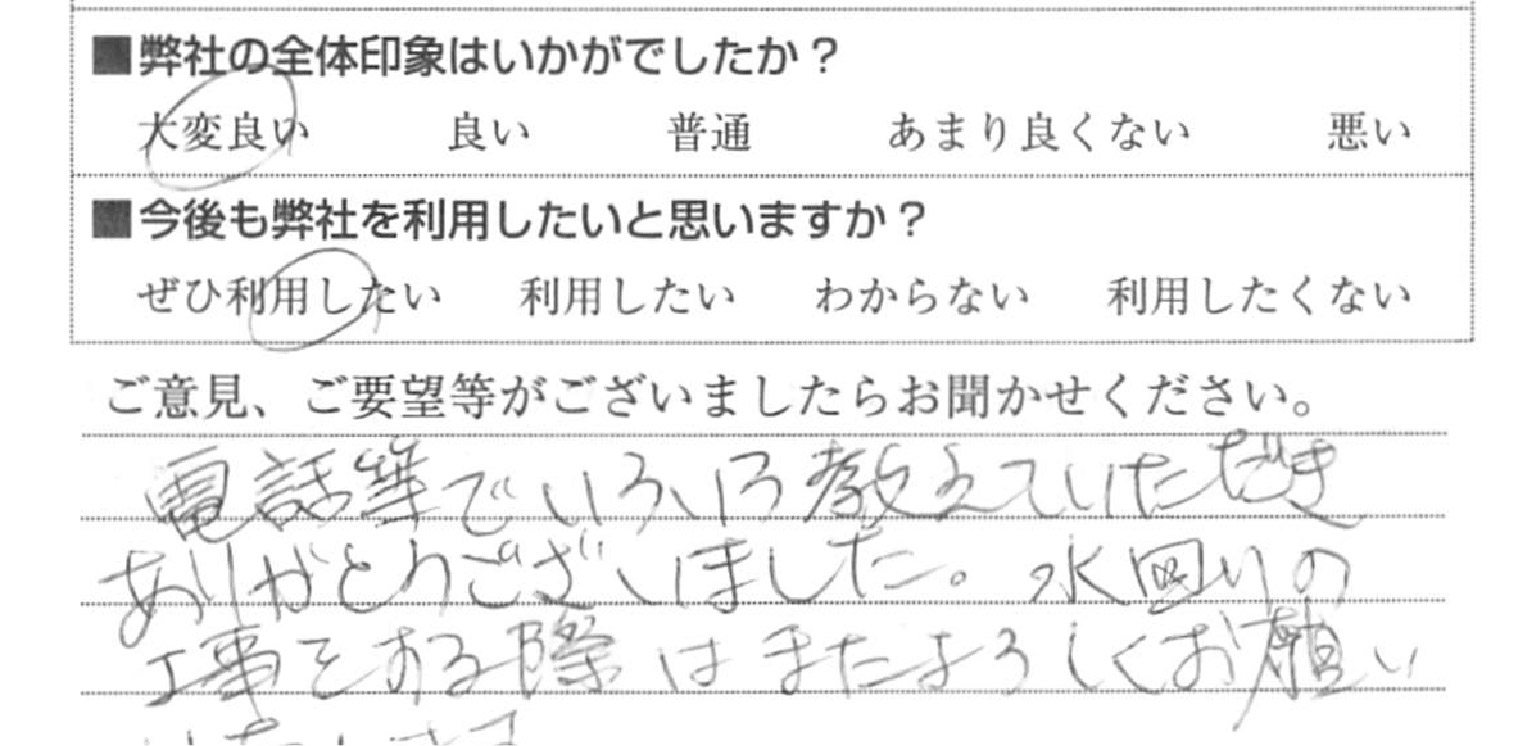 ■弊社の全体印象はいかがでしたか？
大変良い 良い 普通 あまり良くない 悪い
■今後も弊社を利用したいと思いますか？
ぜひ利用したい 利用したい わからない 利用したくない
ご意見、ご要望等がございましたらお聞かせください。
電話等でいろいろ教えていただき
ありがとうございました。水回りの
工事をする際はまたよろしくお願い